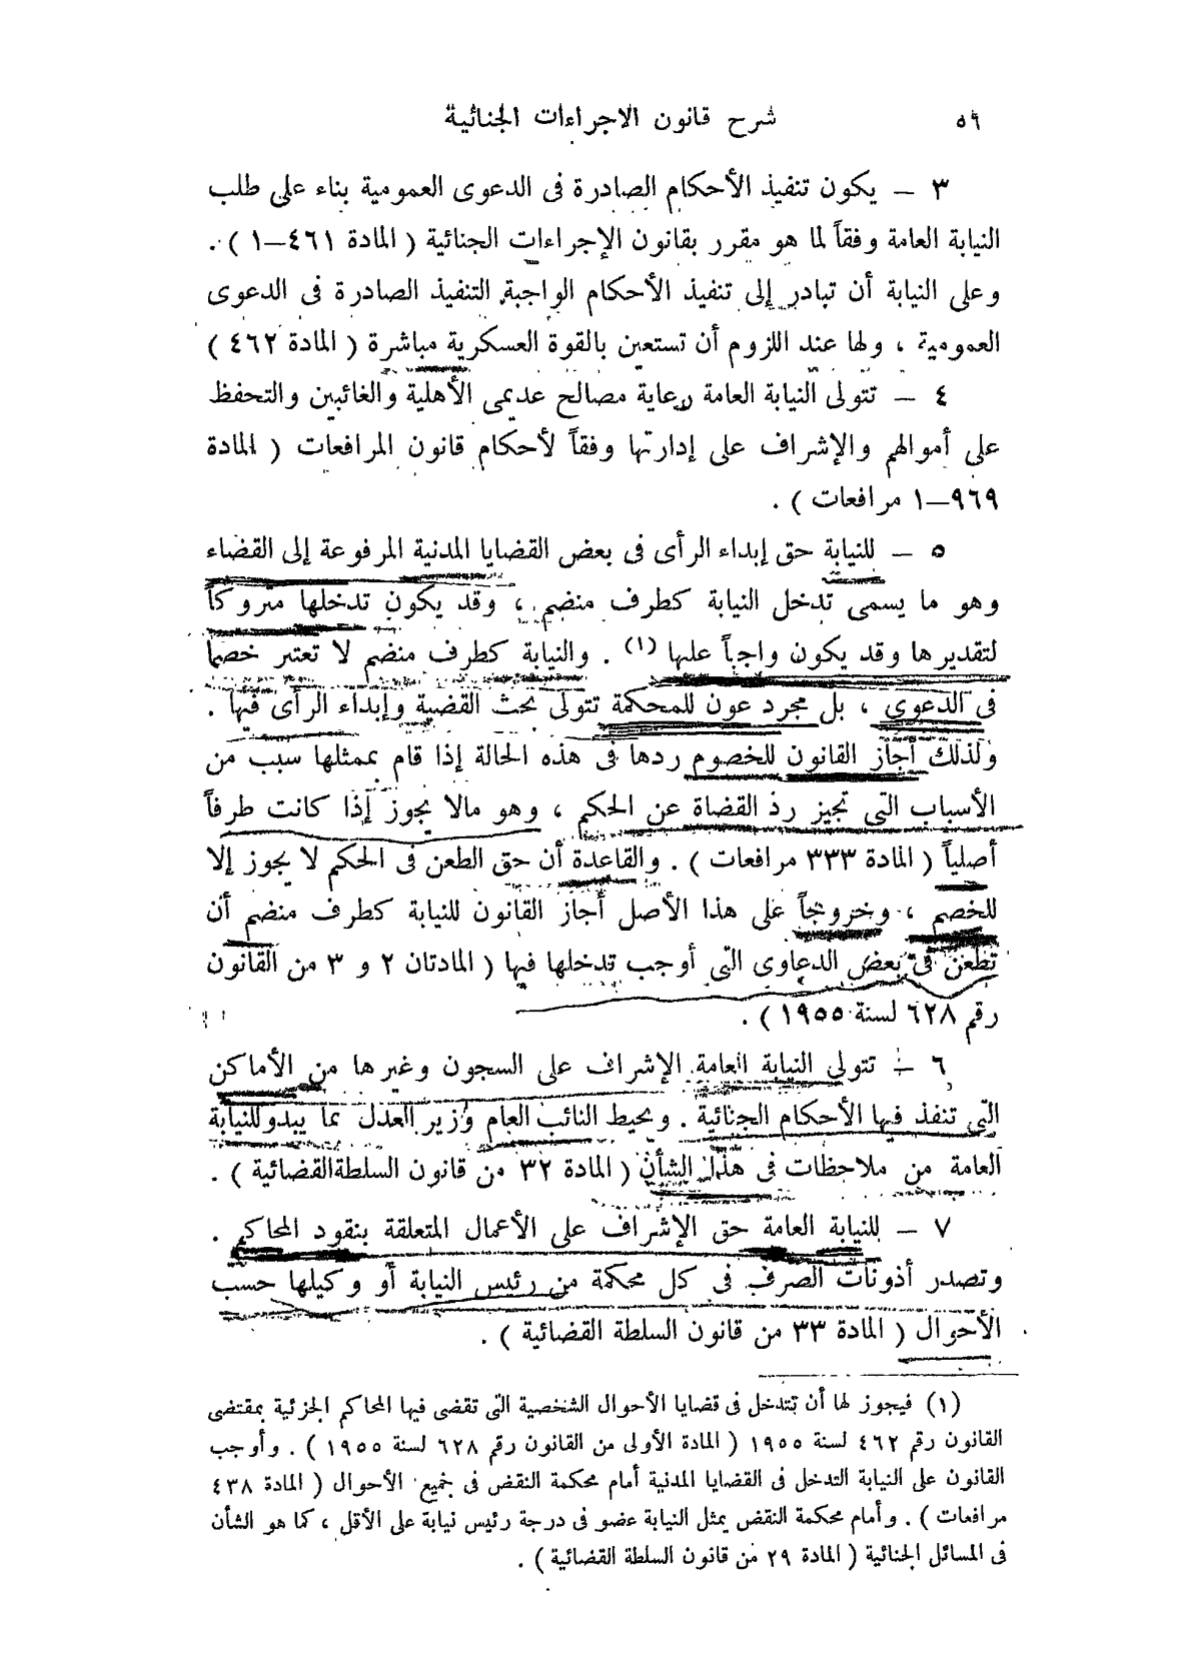 ٥٩ شرح قانون الاجراءات الجنائية
٣ — يكون تنفيذ الأحكام الصادرة فى الدعوى العمومية بناء على طلب
النيابة العامة وفقاً لما هو مقرر بقانون الإجراءات الجنائية ( المادة ٤٦١—١ ) .
وعلى النيابة أن تبادر إلى تنفيذ الأحكام الواجبة التنفيذ الصادرة فى الدعوى
العمومية ، ولها عند اللزوم أن تستعين بالقوة العسكرية مباشرة ( المادة ٤٦٢ )
٤ — تتولى النيابة العامة رعاية مصالح عديمى الأهلية والغائبين والتحفظ
على أموالهم والإشراف على إدارتها وفقاً لأحكام قانون المرافعات ( المادة
٩٦٩—١ مرافعات ) .
٥ — للنيابة حق إبداء الرأى فى بعض القضايا المدنية المرفوعة إلى القضاء
وهو ما يسمى تدخل النيابة كطرف منضم ، وقد يكون تدخلها متروكاً
لتقديرها وقد يكون واجباً عليها (١) . والنيابة كطرف منضم لا تعتبر خصما
فى الدعوى ، بل مجرد عون للمحكمة تتولى بحث القضية وإبداء الرأى فيها .
ولذلك أجاز القانون للخصوم ردها فى هذه الحالة إذا قام بممثلها سبب من
الأسباب التى تجيز رد القضاة عن الحكم ، وهو مالا يجوز إذا كانت طرفاً
أصلياً ( المادة ٣٣٣ مرافعات ) . والقاعدة أن حق الطعن فى الحكم لا يجوز إلا
للخصم ، وخروجاً على هذا الأصل أجاز القانون للنيابة كطرف منضم أن
تطعن فى بعض الدعاوى التى أوجب تدخلها فيها ( المادتان ٢ و ٣ من القانون
رقم ٦٢٨ لسنة ١٩٥٥ ) .
٦ — تتولى النيابة العامة الإشراف على السجون وغيرها من الأماكن
التى تنفذ فيها الأحكام الجنائية . ويحيط النائب العام وزير العدل بما يبدو للنيابة
العامة من ملاحظات فى هذا الشأن ( المادة ٣٢ من قانون السلطةالقضائية ) .
٧ — للنيابة العامة حق الإشراف على الأعمال المتعلقة بنقود المحاكم .
وتصدر أذونات الصرف فى كل محكمة من رئيس النيابة أو وكيلها حسب
الأحوال ( المادة ٣٣ من قانون السلطة القضائية ) .
(١) فيجوز لها أن تتدخل فى قضايا الأحوال الشخصية التى تقضى فيها المحاكم الجزئية بمقتضى
القانون رقم ٤٦٢ لسنة ١٩٥٥ ( المادة الأولى من القانون رقم ٦٢٨ لسنة ١٩٥٥ ) . وأوجب
القانون على النيابة التدخل فى القضايا المدنية أمام محكمة النقض فى جميع الأحوال ( المادة ٤٣٨
مرافعات ) . وأمام محكمة النقض يمثل النيابة عضو فى درجة رئيس نيابة على الأقل ، كما هو الشأن
فى المسائل الجنائية ( المادة ٢٩ من قانون السلطة القضائية ) .